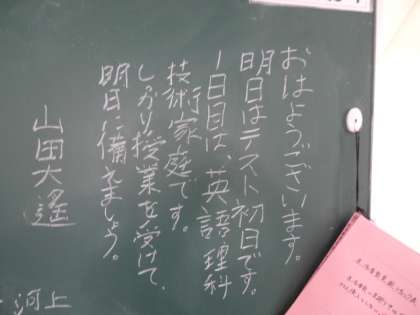 おはようございます。
明日はテスト初日です。
1日目は、英語理科
技術家庭です。
しっかり授業を受けて、
明日に備えましょう。
山田大遥
河上